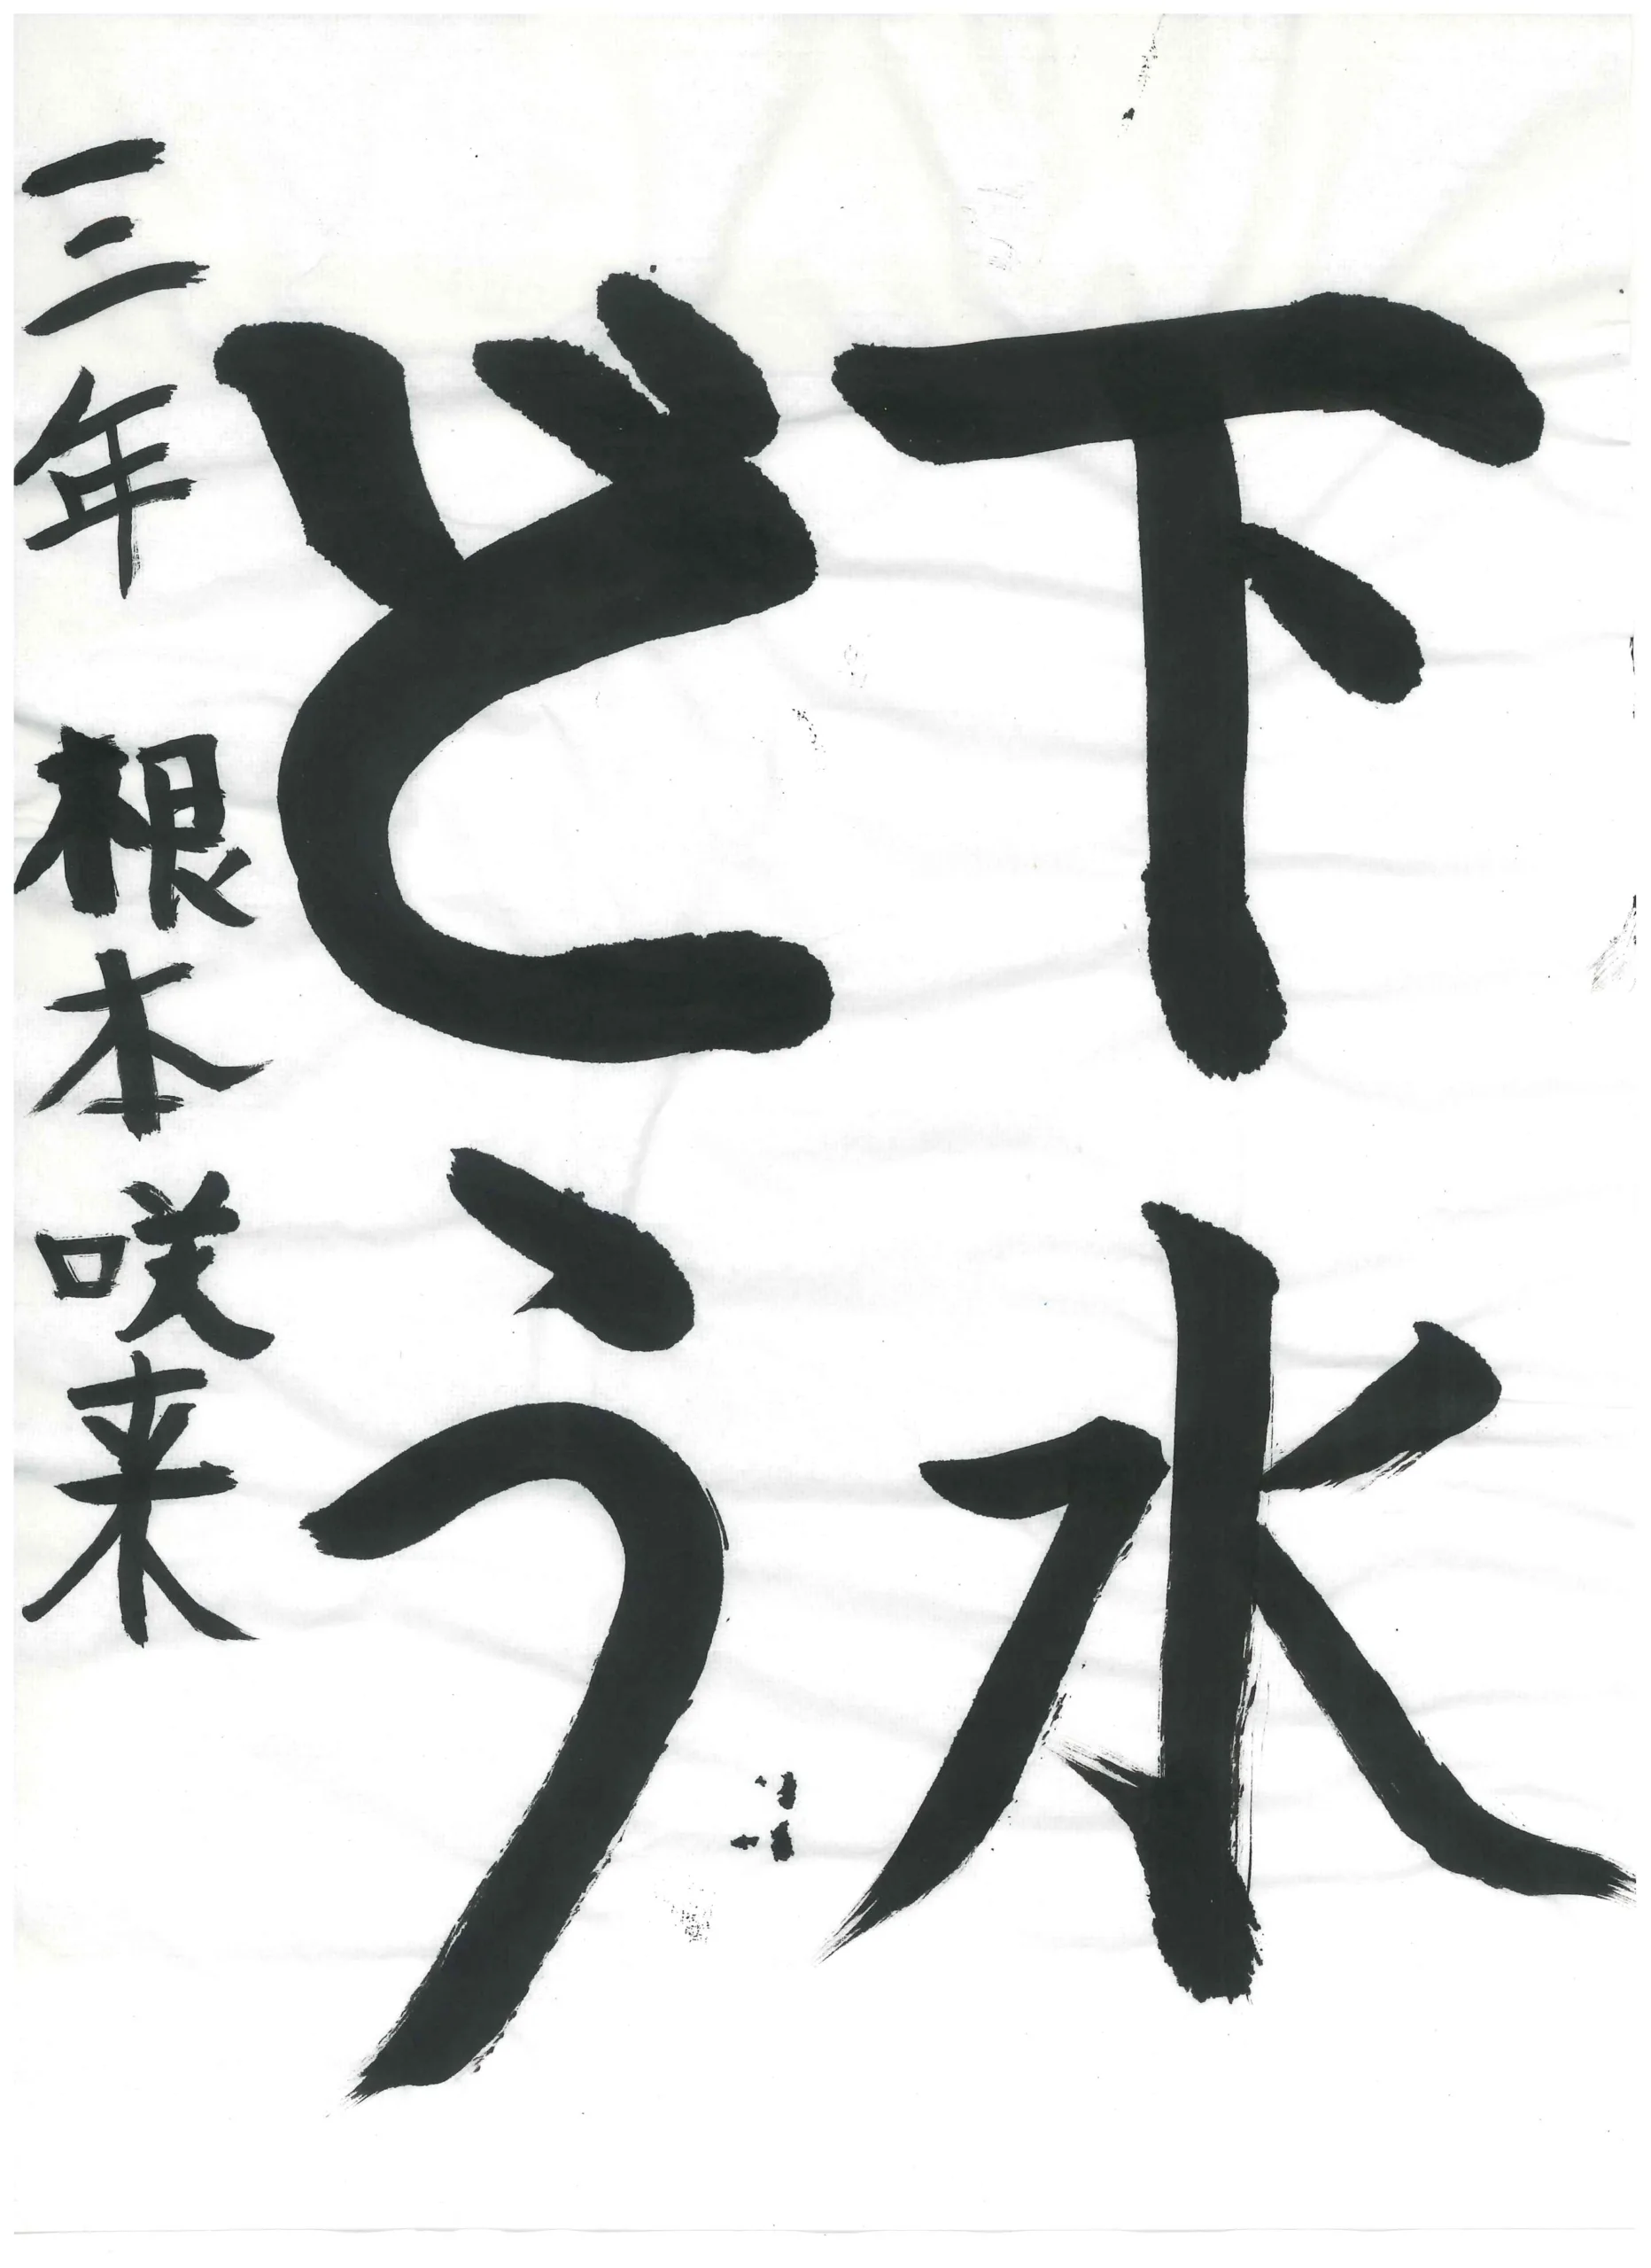 下水
どう
三年 根本咲来